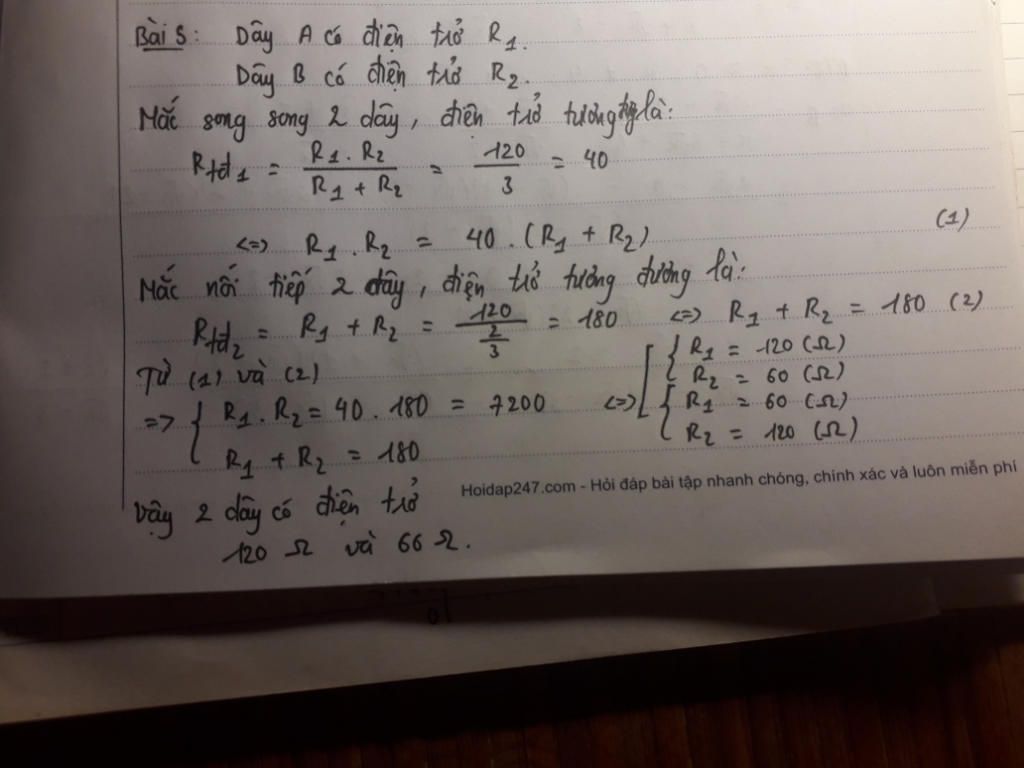 Bài 5: Dây A có điện trở R₁.
Dây B có điện trở R₂.
Mắc song song 2 dây, điện trở tương là:
Rtđ₁ = (R₁ . R₂)/(R₁ + R₂) = 120/3 = 40
<=> R₁ . R₂ = 40 . (R₁ + R₂) (1)
Mắc nối tiếp 2 dây, điện trở tương đương là:
Rtđ₂ = R₁ + R₂ = 120/(2/3) = 180 <=> R₁ + R₂ = 180 (2)
Từ (1) và (2)
=> { R₁ . R₂ = 40 . 180 = 7200
R₁ + R₂ = 180
<=> [ { R₁ = 120 (Ω)
R₂ = 60 (Ω)
{ R₁ = 60 (Ω)
R₂ = 120 (Ω)
Hoidap247.com - Hỏi đáp bài tập nhanh chóng, chính xác và luôn miễn phí
Vậy 2 dây có điện trở
120 Ω và 66 Ω.